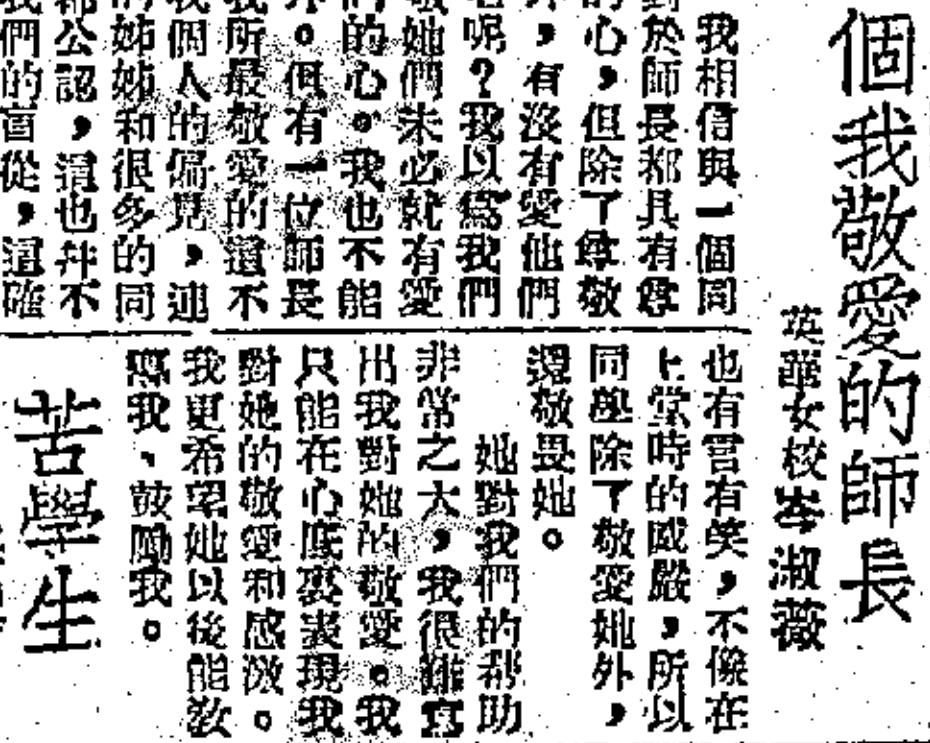 個我敬愛的師長
英華女校岑淑薇
我相信與一個同
對於師長都具有尊
的心，但除了尊敬
外，有沒有愛他們
者呢？我以爲我們
敬她們未必就有愛
們的心。我也不能
外。但有一位師長
我所最敬愛的這不
我個人的偏見，連
的姊姊和很多的同
都公認，這也幷不
我們的盲從，這確
也有言有笑，不像在
上堂時的威嚴，所以
同學除了敬愛她外，
還敬畏她。
她對我們的幫助
非常之大，我很難寫
出我對她的敬愛。我
只能在心底裏表現我
對她的敬愛和感激。
我更希望她以後能敎
馮我、鼓勵我。
苦學生